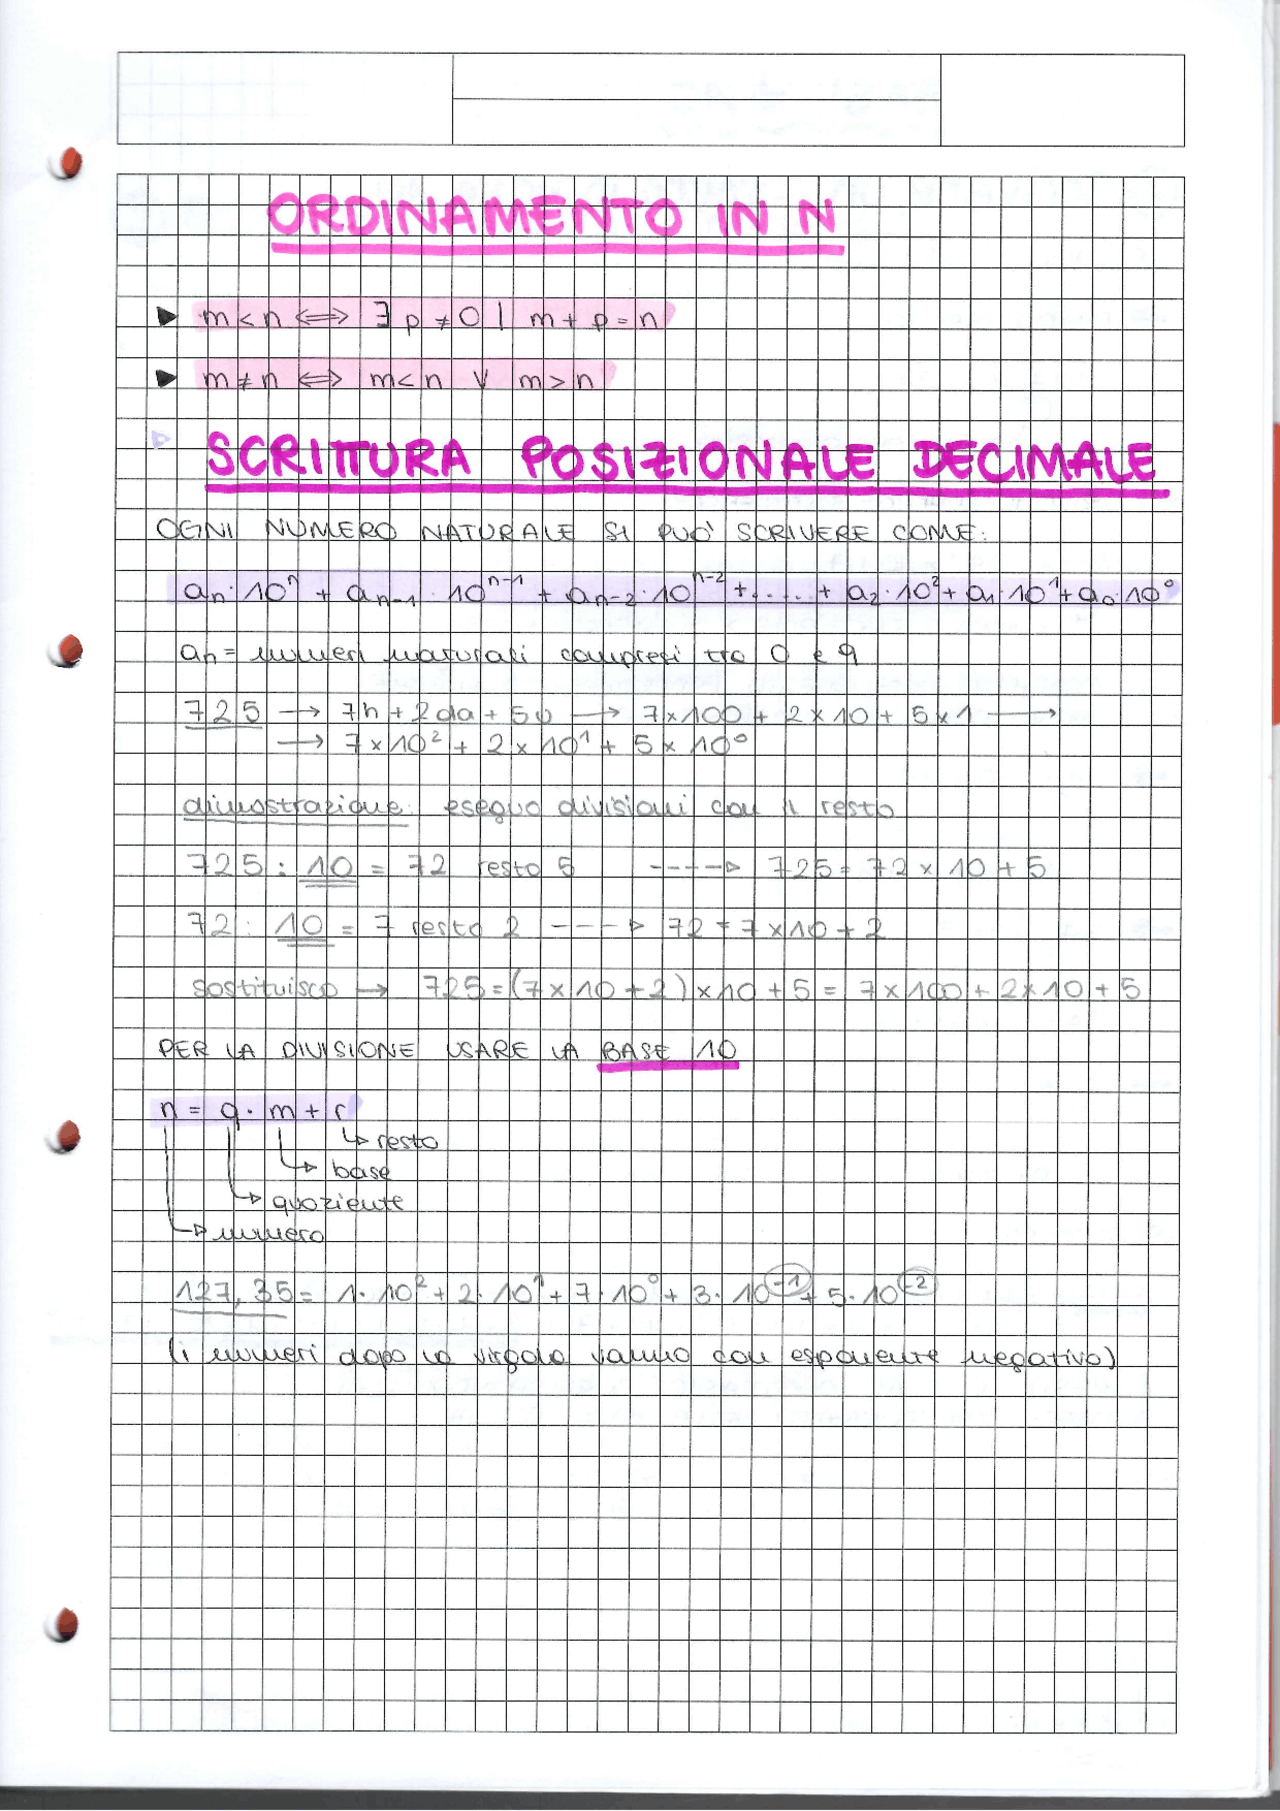 ORDINAMENTO IN N
▶ m < n ⟺ ∃ p ≠ 0 | m + p = n
▶ m ≠ n ⟺ m < n ∨ m > n
SCRITTURA POSIZIONALE DECIMALE
OGNI NUMERO NATURALE SI PUO' SCRIVERE COME:
aₙ · 10ⁿ + aₙ₋₁ · 10ⁿ⁻¹ + aₙ₋₂ · 10ⁿ⁻² + ..... + a₂ · 10² + a₁ · 10¹ + a₀ · 10⁰
aₙ = numeri naturali compresi tra 0 e 9
725 → 7h + 2da + 5u → 7×100 + 2×10 + 5×1 →
→ 7×10² + 2×10¹ + 5×10⁰
dimostrazione: eseguo divisioni con il resto
725 : 10 = 72 resto 5 ----▷ 725 = 72 × 10 + 5
72 : 10 = 7 resto 2 ----▷ 72 = 7×10 + 2
sostituisco → 725 = (7×10 + 2)×10 + 5 = 7×100 + 2×10 + 5
PER LA DIVISIONE USARE LA BASE 10
n = q · m + r
resto
base
quoziente
numero
127,35 = 1·10² + 2·10¹ + 7·10⁰ + 3·10⁻¹ + 5·10⁻²
(i numeri dopo la virgola vanno con esponente negativo)